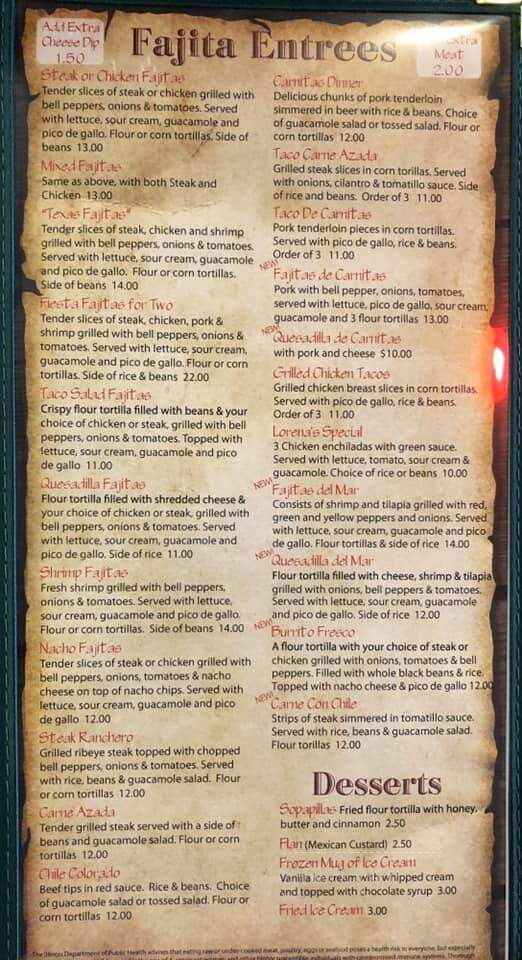 Add Extra
Cheese Dip
1.50
Fajita Èntrees
Extra
Meat
2.00
Steak or Chicken Fajitas
Tender slices of steak or chicken grilled with
bell peppers, onions & tomatoes. Served
with lettuce, sour cream, guacamole and
pico de gallo. Flour or corn tortillas. Side of
beans 13.00
Mixed Fajitas
Same as above, with both Steak and
Chicken 13.00
"Texas Fajitas"
Tender slices of steak, chicken and shrimp
grilled with bell peppers, onions & tomatoes.
Served with lettuce, sour cream, guacamole
and pico de gallo. Flour or corn tortillas.
Side of beans 14.00
Fiesta Fajitas for Two
Tender slices of steak, chicken, pork &
shrimp grilled with bell peppers, onions &
tomatoes. Served with lettuce, sour cream,
guacamole and pico de gallo. Flour or corn
tortillas. Side of rice & beans 22.00
Taco Salad Fajitas
Crispy flour tortilla filled with beans & your
choice of chicken or steak, grilled with bell
peppers, onions & tomatoes. Topped with
lettuce, sour cream, guacamole and pico
de gallo 11.00
Quesadilla Fajitas
Flour tortilla filled with shredded cheese &
your choice of chicken or steak, grilled with
bell peppers, onions & tomatoes. Served
with lettuce, sour cream, guacamole and
pico de gallo. Side of rice 11.00
Shrimp Fajitas
Fresh shrimp grilled with bell peppers,
onions & tomatoes. Served with lettuce,
sour cream, guacamole and pico de gallo.
Flour or corn tortillas. Side of beans 14.00
Nacho Fajitas
Tender slices of steak or chicken grilled with
bell peppers, onions, tomatoes & nacho
cheese on top of nacho chips. Served with
lettuce, sour cream, guacamole and pico
de gallo 12.00
Steak Ranchero
Grilled ribeye steak topped with chopped
bell peppers, onions & tomatoes. Served
with rice, beans & guacamole salad. Flour
or corn tortillas 12.00
Carne Azada
Tender grilled steak served with a side of
beans and guacamole salad. Flour or corn
tortillas 12.00
Chile Colorado
Beef tips in red sauce. Rice & beans. Choice
of guacamole salad or tossed salad. Flour or
corn tortillas 12.00
Carnitas Dinner
Delicious chunks of pork tenderloin
simmered in beer with rice & beans. Choice
of guacamole salad or tossed salad. Flour or
corn tortillas 12.00
Taco Carne Azada
Grilled steak slices in corn torillas. Served
with onions, cilantro & tomatillo sauce. Side
of rice and beans. Order of 3 11.00
Taco De Carnitas
Pork tenderloin pieces in corn tortillas.
Served with pico de gallo, rice & beans.
Order of 3 11.00
NEW!
Fajitas de Carnitas
Pork with bell pepper, onions, tomatoes,
served with lettuce, pico de gallo, sour cream,
guacamole and 3 flour tortillas 13.00
NEW!
Quesadilla de Carnitas
with pork and cheese $10.00
Grilled Chicken Tacos
Grilled chicken breast slices in corn tortillas.
Served with pico de gallo, rice & beans.
Order of 3 11.00
Lorena's Special
3 Chicken enchiladas with green sauce.
Served with lettuce, tomato, sour cream &
guacamole. Choice of rice or beans 10.00
NEW!
Fajitas del Mar
Consists of shrimp and tilapia grilled with red,
green and yellow peppers and onions. Served
with lettuce, sour cream, guacamole and pico
de gallo. Flour tortillas & side of rice 14.00
NEW!
Quesadilla del Mar
Flour tortilla filled with cheese, shrimp & tilapia
grilled with onions, bell peppers & tomatoes.
Served with lettuce, sour cream, guacamole
and pico de gallo. Side of rice 12.00
NEW!
Burrito Fresco
A flour tortilla with your choice of steak or
chicken grilled with onions, tomatoes & bell
peppers. Filled with whole black beans & rice.
Topped with nacho cheese & pico de gallo 12.00
NEW!
Carne Con Chile
Strips of steak simmered in tomatillo sauce.
Served with rice, beans & guacamole salad.
Flour torillas 12.00
Desserts
Sopapillas Fried flour tortilla with honey,
butter and cinnamon 2.50
Flan (Mexican Custard) 2.50
Frozen Mug of Ice Cream
Vanilla ice cream with whipped cream
and topped with chocolate syrup 3.00
Fried Ice Cream 3.00
The Illinois Department of Public Health advises that eating raw or under-cooked meat, poultry, eggs or seafood poses a health risk to everyone, but especially